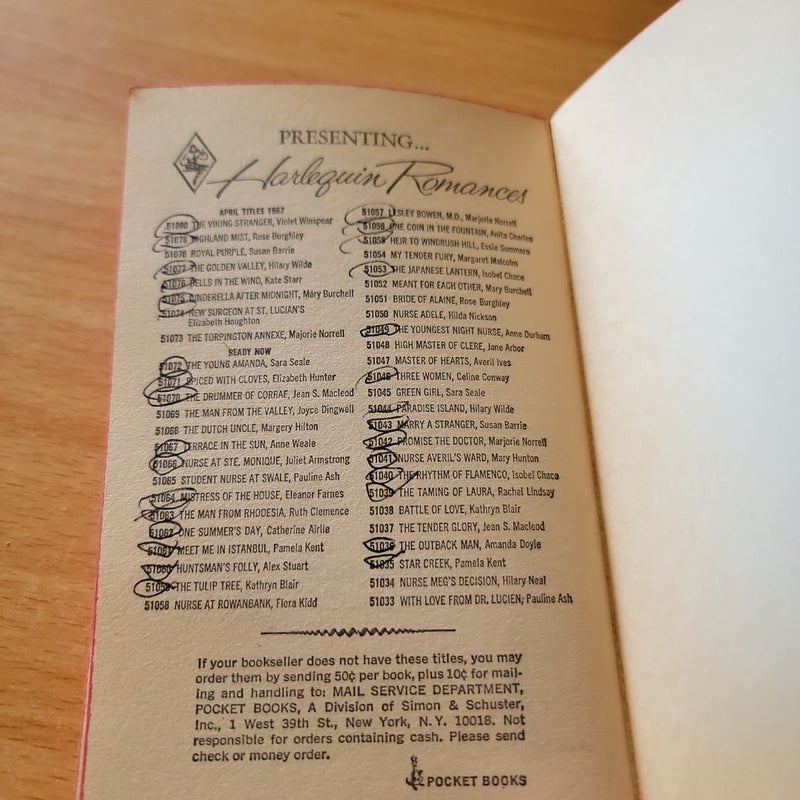 PRESENTING...
Harlequin Romances
APRIL TITLES 1967
51080 THE VIKING STRANGER, Violet Winspear
51079 HIGHLAND MIST, Rose Burghley
51078 ROYAL PURPLE, Susan Barrie
51077 THE GOLDEN VALLEY, Hilary Wilde
51076 BELLS IN THE WIND, Kate Starr
51075 CINDERELLA AFTER MIDNIGHT, Mary Burchell
51074 NEW SURGEON AT ST. LUCIAN'S
Elizabeth Houghton
51073 THE TORPINGTON ANNEXE, Majorie Norrell
READY NOW
51072 THE YOUNG AMANDA, Sara Seale
51071 SPICED WITH CLOVES, Elizabeth Hunter
51070 THE DRUMMER OF CORRAE, Jean S. Macleod
51069 THE MAN FROM THE VALLEY, Joyce Dingwell
51068 THE DUTCH UNCLE, Margery Hilton
51067 TERRACE IN THE SUN, Anne Weale
51066 NURSE AT STE. MONIQUE, Juliet Armstrong
51065 STUDENT NURSE AT SWALE, Pauline Ash
51064 MISTRESS OF THE HOUSE, Eleanor Farnes
51063 THE MAN FROM RHODESIA, Ruth Clemence
51062 ONE SUMMER'S DAY, Catherine Airlie
51061 MEET ME IN ISTANBUL, Pamela Kent
51060 HUNTSMAN'S FOLLY, Alex Stuart
51059 THE TULIP TREE, Kathryn Blair
51058 NURSE AT ROWANBANK, Flora Kidd
51057 LESLEY BOWEN, M.D., Marjorie Norrell
51056 ONE COIN IN THE FOUNTAIN, Anita Charles
51055 HEIR TO WINDRUSH HILL, Essie Summers
51054 MY TENDER FURY, Margaret Malcolm
51053 THE JAPANESE LANTERN, Isobel Chace
51052 MEANT FOR EACH OTHER, Mary Burchell
51051 BRIDE OF ALAINE, Rose Burghley
51050 NURSE ADELE, Hilda Nickson
51049 THE YOUNGEST NIGHT NURSE, Anne Durham
51048 HIGH MASTER OF CLERE, Jane Arbor
51047 MASTER OF HEARTS, Averil Ives
51046 THREE WOMEN, Celine Conway
51045 GREEN GIRL, Sara Seale
51044 PARADISE ISLAND, Hilary Wilde
51043 MARRY A STRANGER, Susan Barrie
51042 PROMISE THE DOCTOR, Marjorie Norrell
51041 NURSE AVERIL'S WARD, Mary Hunton
51040 THE RHYTHM OF FLAMENCO, Isobel Chace
51039 THE TAMING OF LAURA, Rachel Lindsay
51038 BATTLE OF LOVE, Kathryn Blair
51037 THE TENDER GLORY, Jean S. Macleod
51036 THE OUTBACK MAN, Amanda Doyle
51035 STAR CREEK, Pamela Kent
51034 NURSE MEG'S DECISION, Hilary Neal
51033 WITH LOVE FROM DR. LUCIEN, Pauline Ash
If your bookseller does not have these titles, you may
order them by sending 50¢ per book, plus 10¢ for mail-
ing and handling to: MAIL SERVICE DEPARTMENT,
POCKET BOOKS, A Division of Simon & Schuster,
Inc., 1 West 39th St., New York, N. Y. 10018. Not
responsible for orders containing cash. Please send
check or money order.
POCKET BOOKS